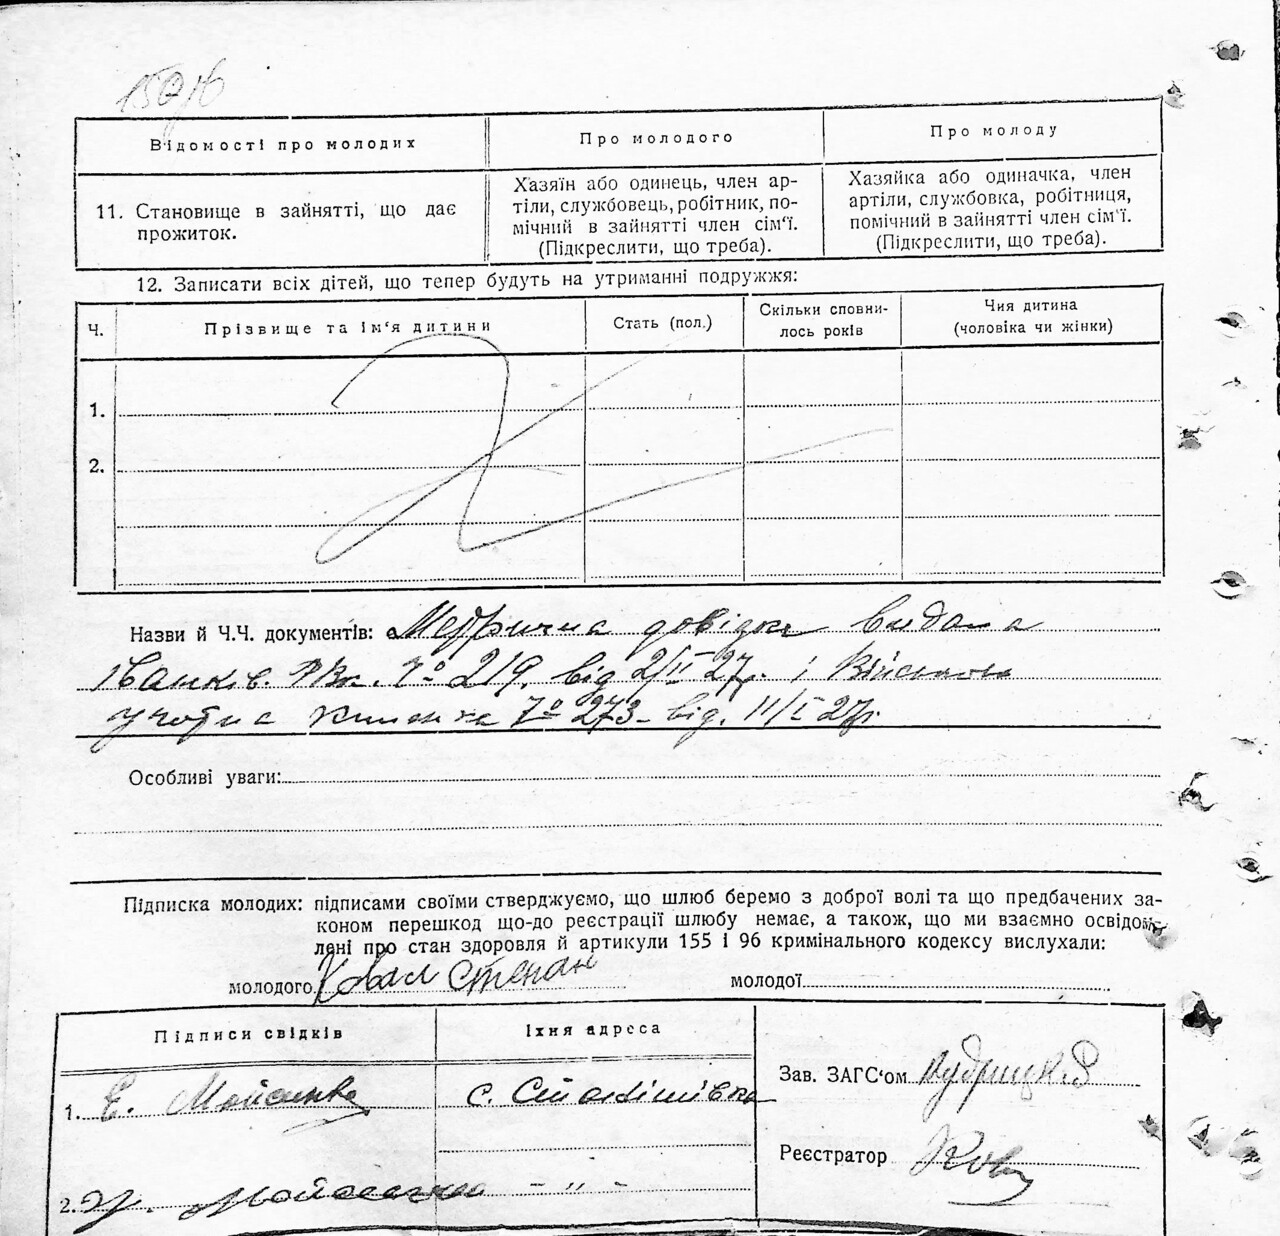 Відомості про молодих
Про молодого
Про молоду
11. Становище в зайнятті, що дає
прожиток.
Хазяїн або одинець, член ар-
тілі, службовець, робітник, по-
мічний в зайнятті член сім'ї.
(Підкреслити, що треба).
Хазяйка або одиначка, член
артіли, службовка, робітниця,
помічний в зайнятті член сім'ї.
(Підкреслити, що треба).
12. Записати всіх дітей, що тепер будуть на утриманні подружжя:
Ч.
Прізвище та ім'я дитини
Стать (пол.)
Скільки сповни-
лось років
Чия дитина
(чоловіка чи жінки)
1.
2.
Назви й Ч.Ч. документів: Метрична довідка видана
Іванків. РВК. № 219. від 2/II 27р. і Військова
учотна книжка № 273 від. 11/I 27р.
Особливі уваги:
Підписка молодих: підписами своїми стверджуємо, що шлюб беремо з доброї волі та що предбачених за-
коном перешкод що-до реєстрації шлюбу немає, а також, що ми взаємно освідом-
лені про стан здоровля й артикули 155 і 96 кримінального кодексу вислухали:
молодого Ковал Степан
молодої
Підписи свідків
Їхня адреса
1. Є. Мойсенко
с.
Зав. ЗАГС'ом
Реєстратор
2.
- „ -